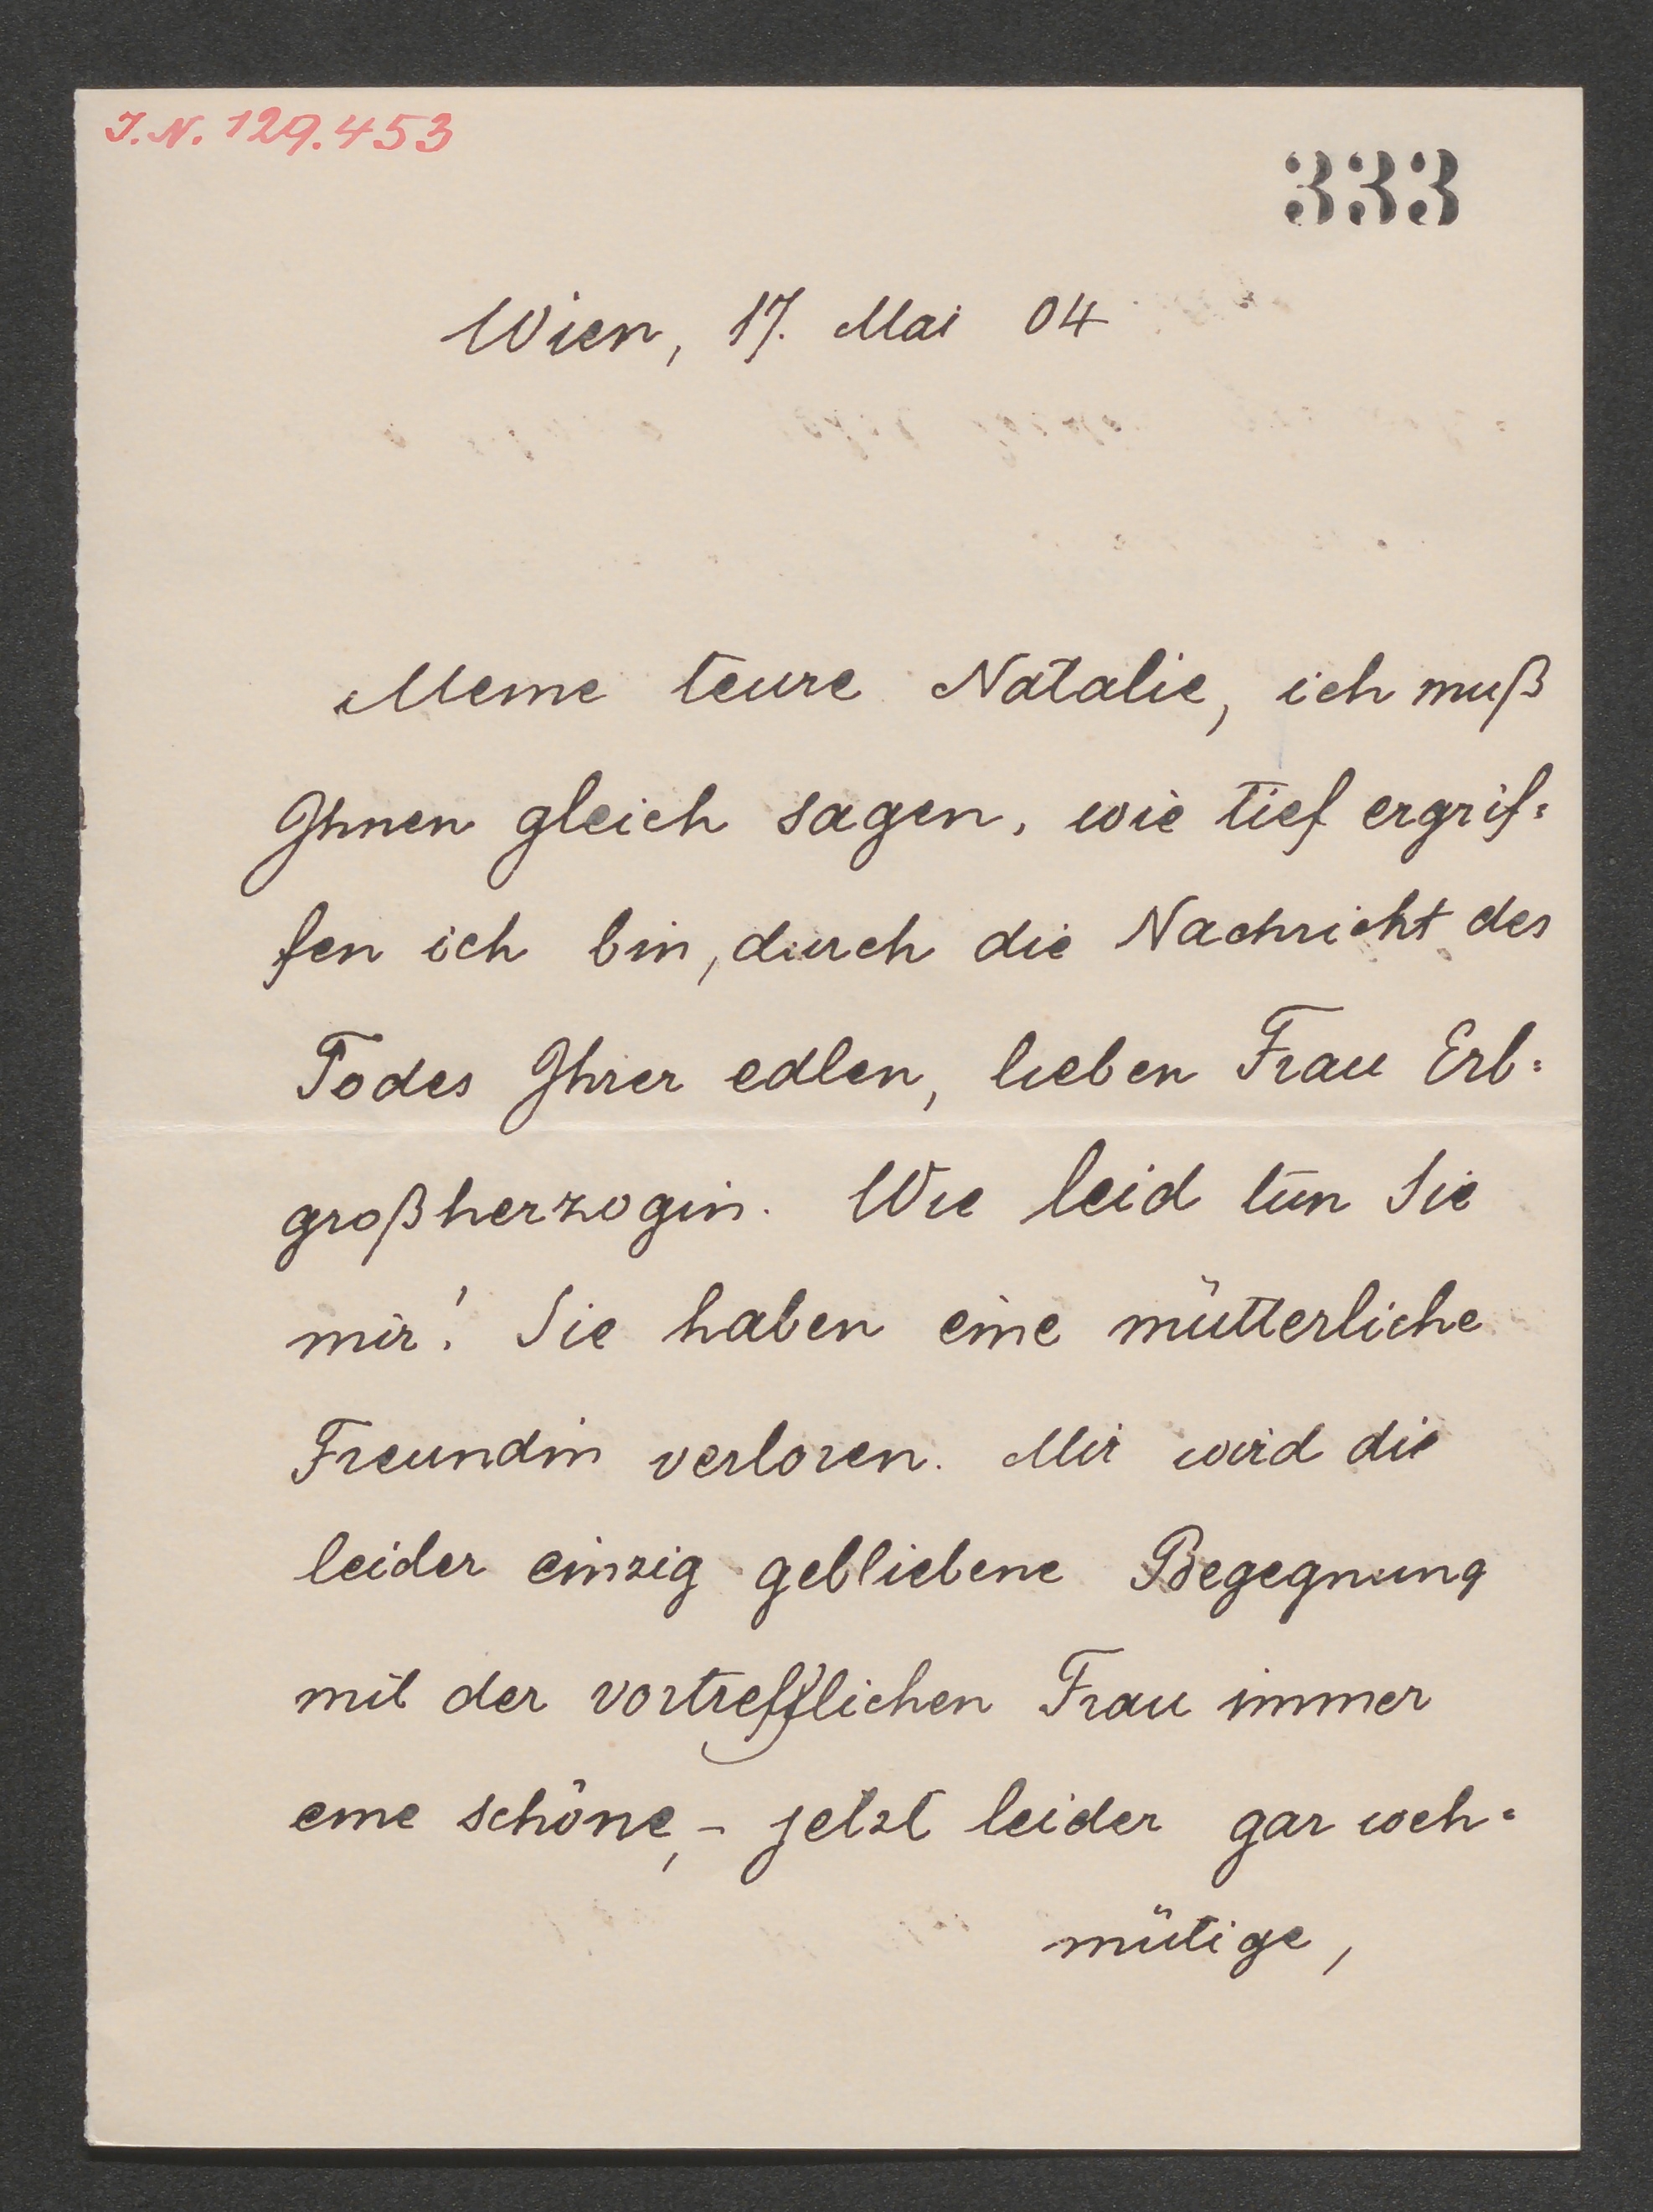 I.N. 129.453
333
Wien, 17. Mai 04
Meine teure Natalie, ich muß
Ihnen gleich sagen, wie tief ergrif=
fen ich bin, durch die Nachricht des
Todes Ihrer edlen, lieben Frau Erb=
großherzogin. Wie leid tun Sie
mir! Sie haben eine mütterliche
Freundin verloren. Mir wird die
leider einzig gebliebene Begegnung
mit der vortrefflichen Frau immer
eine schöne, – jetzt leider gar weh=
mütige,